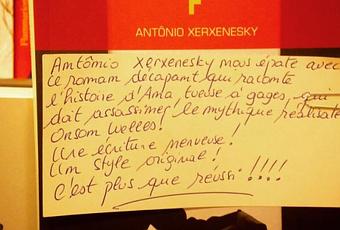 ANTÔNIO XERXENESKY
Antônio Xerxenesky nous épate avec
ce roman décapant qui raconte
l'histoire d'Ana, tueuse à gages, qui
doit assassiner le mythique réalisateur
Orson Welles!
Une écriture nerveuse!
Un style original!
C'est plus que réussi!!!!